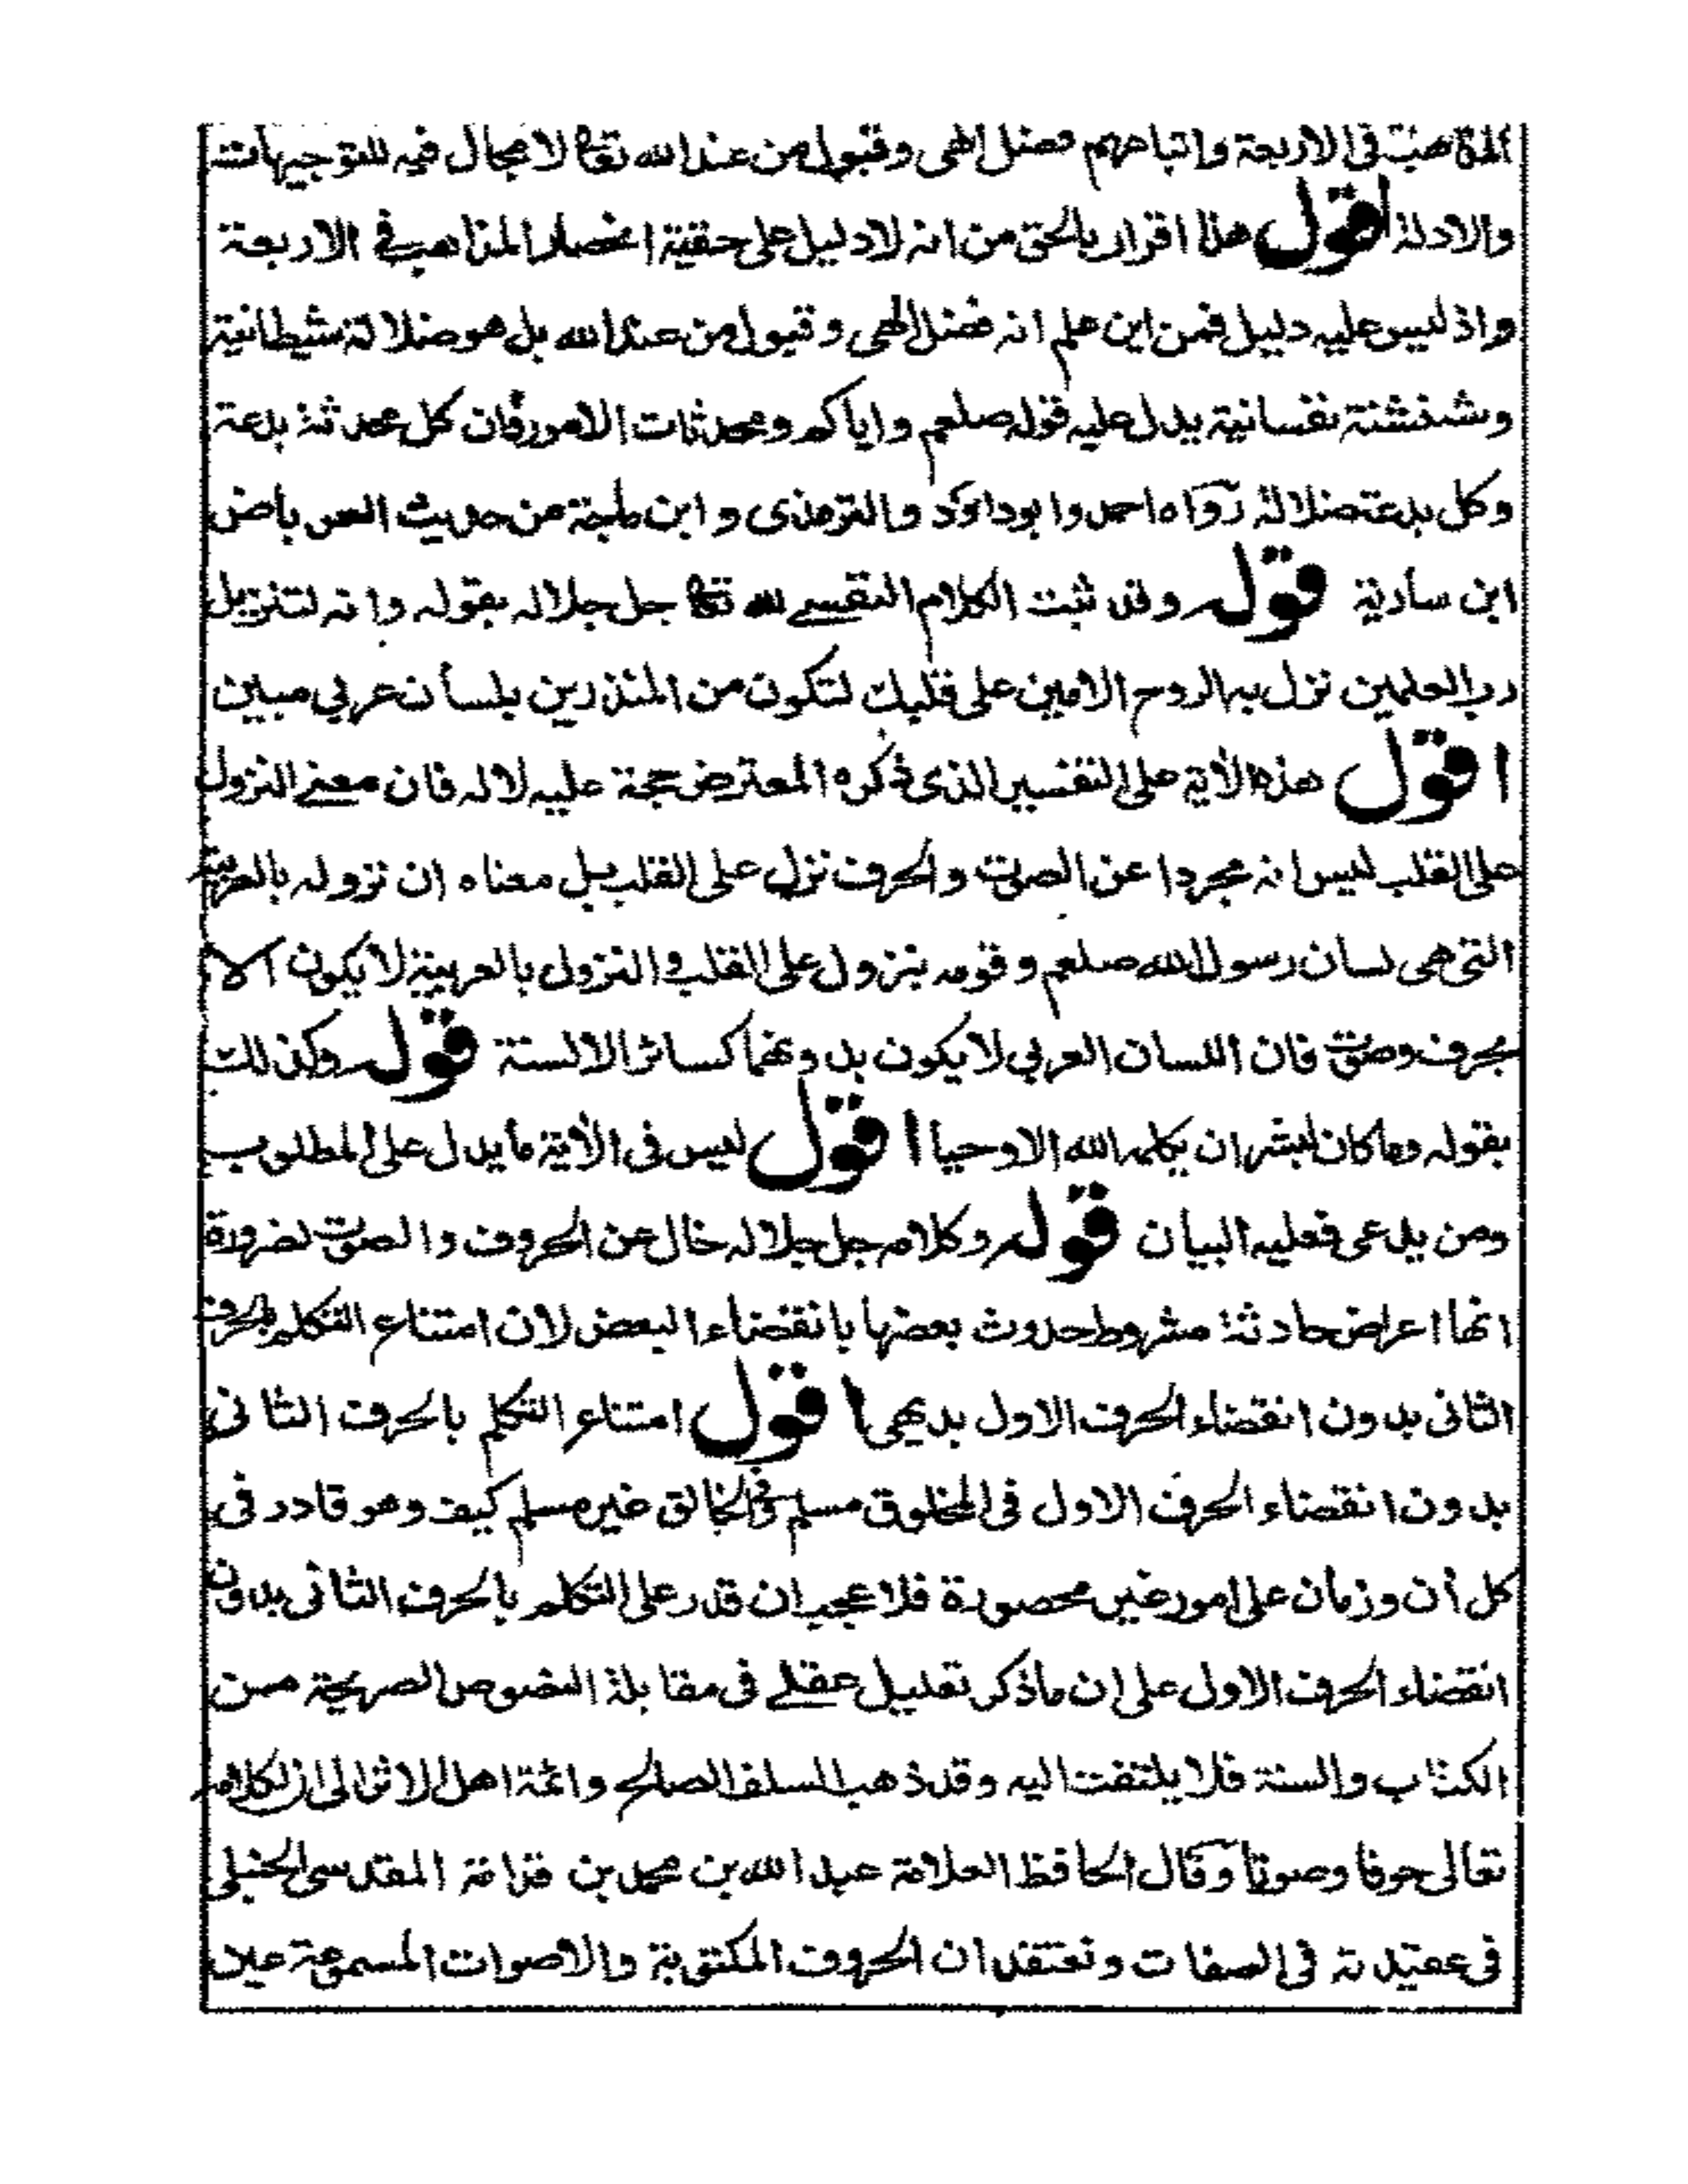 المذاهب في الاربعة واتباعهم فضل الهى وقبول من عند الله تعا لا مجال فيه للتوجيهات
والادلة اقول هذا اقرار بالحق من انه لا دليل على حقية انحصار المذاهب في الاربعة
واذ ليس عليه دليل فمن اين علم انه فضل الهى وقبول من عند الله بل هو ضلالة شيطانية
وشنشنة نفسانية يدل عليه قوله صلعم واياكم ومحدثات الامور فان كل محدثة بدعة
وكل بدعة ضلالة رواه احمد وابو داود والترمذى وابن ماجة من حديث العرباض
ابن سارية قوله وقد ثبت الكلام النفسي لله تعا جل جلاله بقوله وانه لتنزيل
رب العلمين نزل به الروح الامين على قلبك لتكون من المنذرين بلسان عربي مبين
اقول هذه الأية على التفسير الذى ذكره المعترض حجة عليه لا له فان معنى النزول
على القلب ليس انه مجردا عن الصوت والحرف نزل على القلب بل معناه ان نزوله بالعربية
التى هى لسان رسول الله صلعم وقومه ينزول على القلب والنزول بالعربية لا يكون الا
بحرف وصوت فان اللسان العربي لا يكون بدونهما كسائر الالسنة قوله وكذلك
بقوله وما كان لبشر ان يكلمه الله الا وحيا اقول ليس فى الأية ما يدل على المطلوب
ومن يدعى فعليه البيان قوله وكلامه جل جلاله خال عن الحروف والصوت لضرورة
انها اعراض حادثة مشروط حدوث بعضها بانقضاء البعض لان امتناع التكلم بالحرف
الثانى بدون انقضاء الحرف الاول بديهى اقول امتناع التكلم بالحرف الثانى
بدون انقضاء الحرف الاول فى المخلوق مسلم وفى الخالق غير مسلم كيف وهو قادر فى
كل أن وزمان على امور غير محصورة فلا عجب ان قدر على التكلم بالحرف الثانى بدون
انقضاء الحرف الاول على ان ماذكر تعليل عقلي فى مقابلة النصوص الصريحة من
الكتاب والسنة فلا يلتفت اليه وقد ذهب السلف الصالح وائمة اهل الاثر الى ان لكلامه
تعالى حرفا وصوتا وقال الحافظ العلامة عبد الله بن محمد بن قدامة المقدسى الحنبلى
فى عقيدته فى الصفات ونعتقد ان الحروف المكتوبة والاصوات المسموعة عين